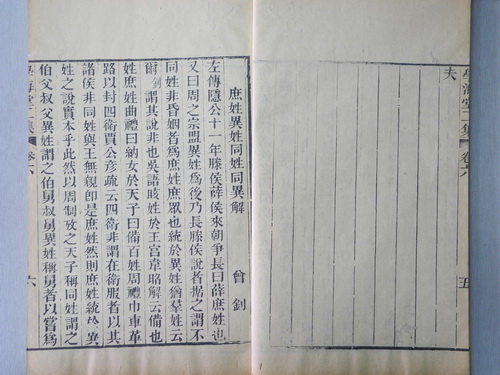 學海堂二集 卷六 五
夫
庶姓異姓同姓同異解 曾釗
左傳隱公十一年滕侯薛侯來朝爭長曰薛庶姓也
又曰周之宗盟異姓爲後乃長滕侯說者據之謂不
同姓非昏姻者爲庶姓庶眾也統於異姓猶羣姓云
爾釗謂其說非也吳語咳姓於王宮韋昭解云備也
姓庶姓曲禮曰納女於天子曰備百姓周禮巾車革
路以封四衛賈公彥疏云四衛非謂在衛服者以其
諸侯非同姓與王無親卽是庶姓然則庶姓統於異
姓之說實本乎此然以周制攷之天子稱同姓謂之
伯父叔父異姓謂之伯舅叔舅異姓稱舅者以嘗爲
學海堂二集 卷六 六